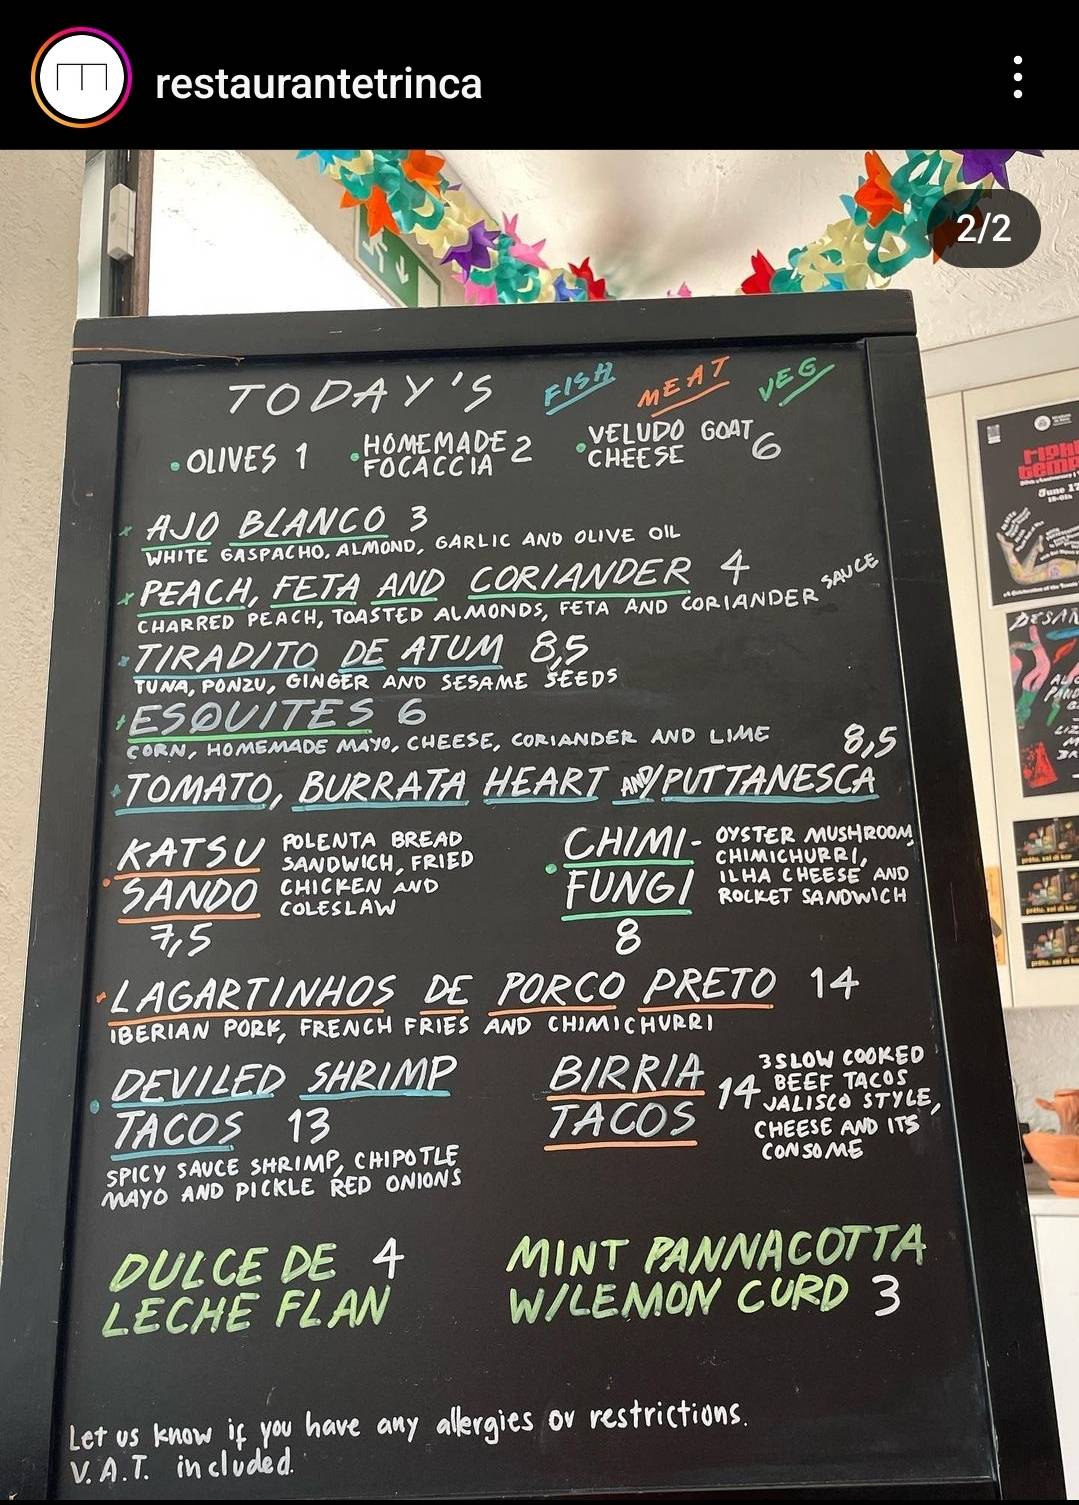 restaurantetrinca
2/2
TODAY'S FISH MEAT VEG
OLIVES 1
HOMEMADE FOCACCIA 2
VELUDO GOAT CHEESE 6
AJO BLANCO 3
WHITE GASPACHO, ALMOND, GARLIC AND OLIVE OIL
PEACH, FETA AND CORIANDER 4
CHARRED PEACH, TOASTED ALMONDS, FETA AND CORIANDER SAUCE
TIRADITO DE ATUM 8,5
TUNA, PONZU, GINGER AND SESAME SEEDS
ESQUITES 6
CORN, HOMEMADE MAYO, CHEESE, CORIANDER AND LIME
8,5
TOMATO, BURRATA HEART AND PUTTANESCA
KATSU
SANDO
7,5
POLENTA BREAD
SANDWICH, FRIED
CHICKEN AND
COLESLAW
CHIMI-
FUNGI
8
OYSTER MUSHROOM,
CHIMICHURRI,
ILHA CHEESE AND
ROCKET SANDWICH
LAGARTINHOS DE PORCO PRETO 14
IBERIAN PORK, FRENCH FRIES AND CHIMICHURRI
DEVILED SHRIMP
TACOS 13
SPICY SAUCE SHRIMP, CHIPOTLE
MAYO AND PICKLE RED ONIONS
BIRRIA
TACOS 14
3 SLOW COOKED
BEEF TACOS
JALISCO STYLE,
CHEESE AND ITS
CONSOME
DULCE DE 4
LECHE FLAN
MINT PANNACOTTA
W/LEMON CURD 3
Let us know if you have any allergies or restrictions.
V.A.T. included.
June 17